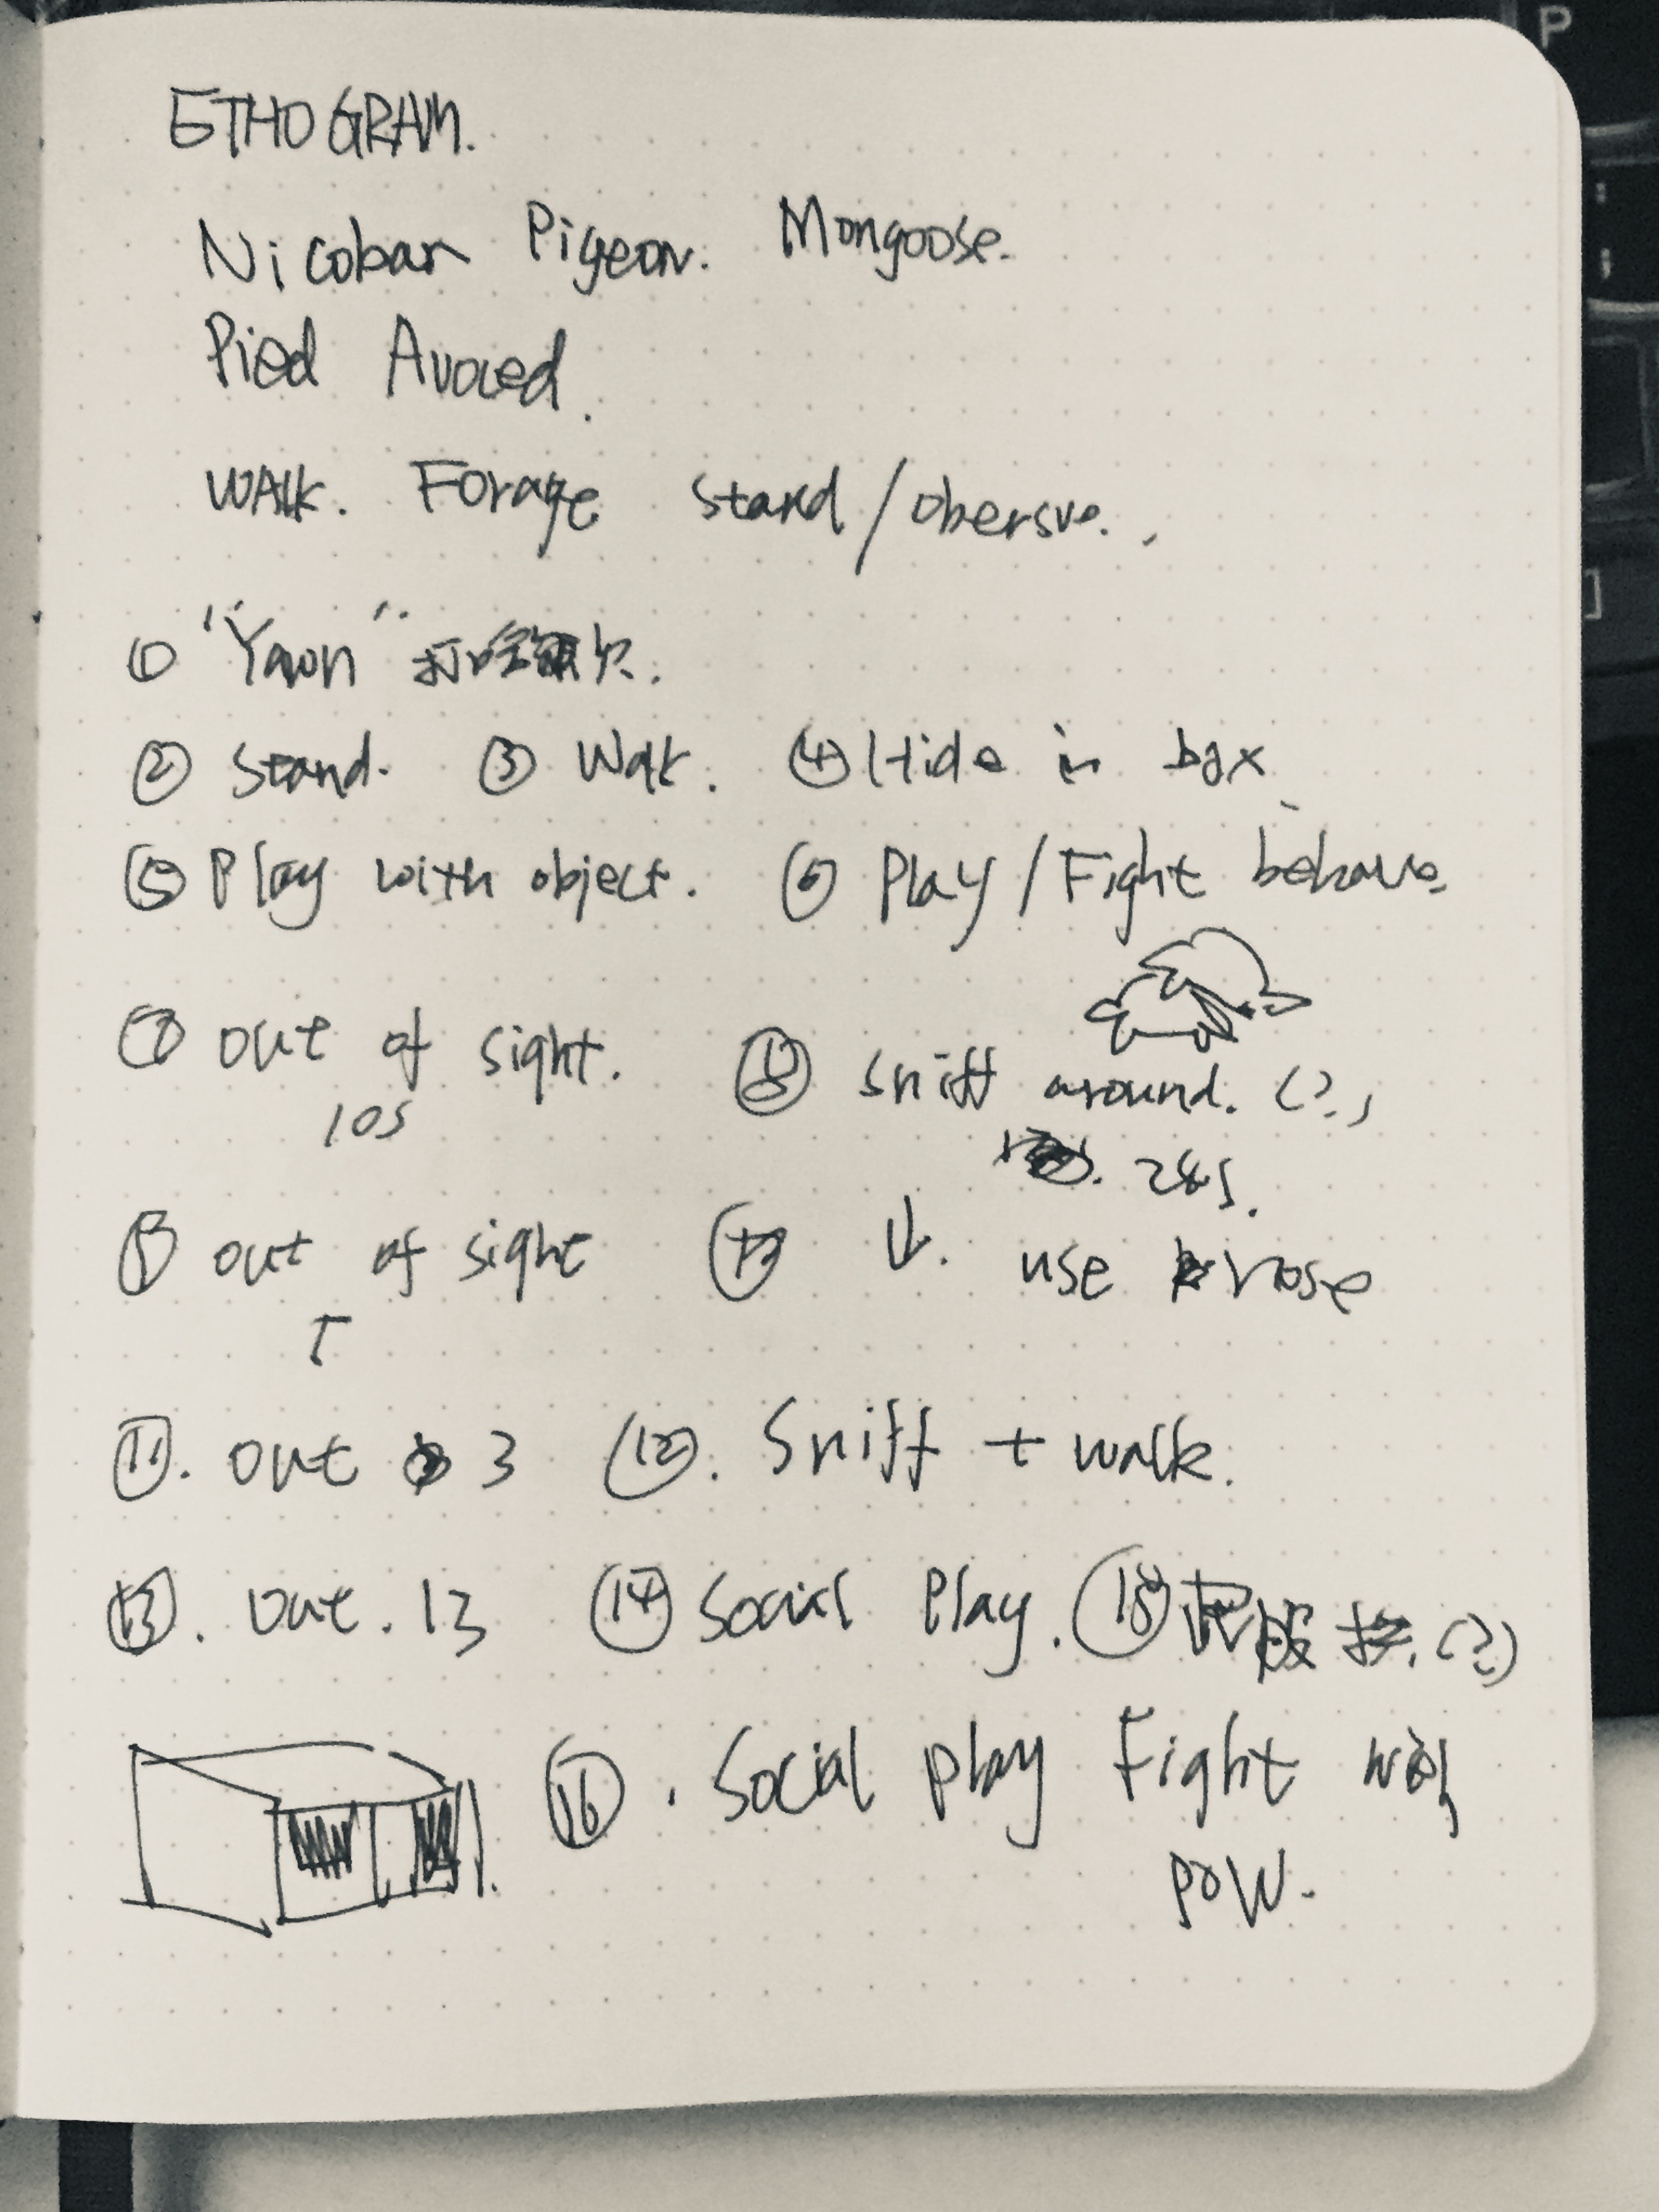 ETHOGRAM.
Nicobar Pigeon. Mongoose.
Pied Avoced.
WAlk. Forage stand/obersve..
① "Yawn" 打哈欠.
② Stand. ③ Walk. ④ Hide in box
⑤ Play with object. ⑥ Play/Fight behave.
⑦ out of sight. ⑧ sniff around. (?)
10s 28s.
⑨ out of sight ↓. use nose
⑪. out 3 ⑫. Sniff + walk.
⑬. out. 13 ⑭ Social Play. ⑮ (?)
⑯. Social play Fight with
pow.
P